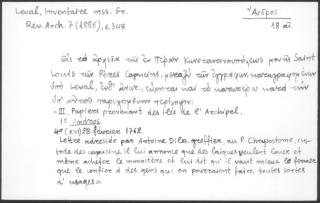 Leval, Inventaire mss. Gr.
Rev. Arch. 7 (1886), σ. 348
Ἄνδρος
18 αἰ.
εἰς τὰ ἀρχεῖα τῆς ἐν Πέραν Κωνσταντινουπόλεως μονῆς Saint
Louis τῶν Pères Capucins, μεταξὺ τῶν ἐγγράφων καταγραφέντων
ὑπὸ Leval, ἔνθ' ἄνωτ., εὕρηται καὶ τὸ κατωτέρω κατὰ τὴν
ὑπ' αὐτοῦ παρεχομένην περίληψιν:
« III Papiers provenant des îles de l'Archipel.
1º Andros.
4º (XVI) 28 février 1762.
Lettre adressée par Antoine Dila, greffier, au P. Chrysostome, cus-
tode des capucins. Il lui annonce que des laïques peulent louer et
même acheter le monastère et lui dit qu'il vaut mieux le fermer
que le confier à des gens qui en pourraient faire toutes sortes
d'usages ».